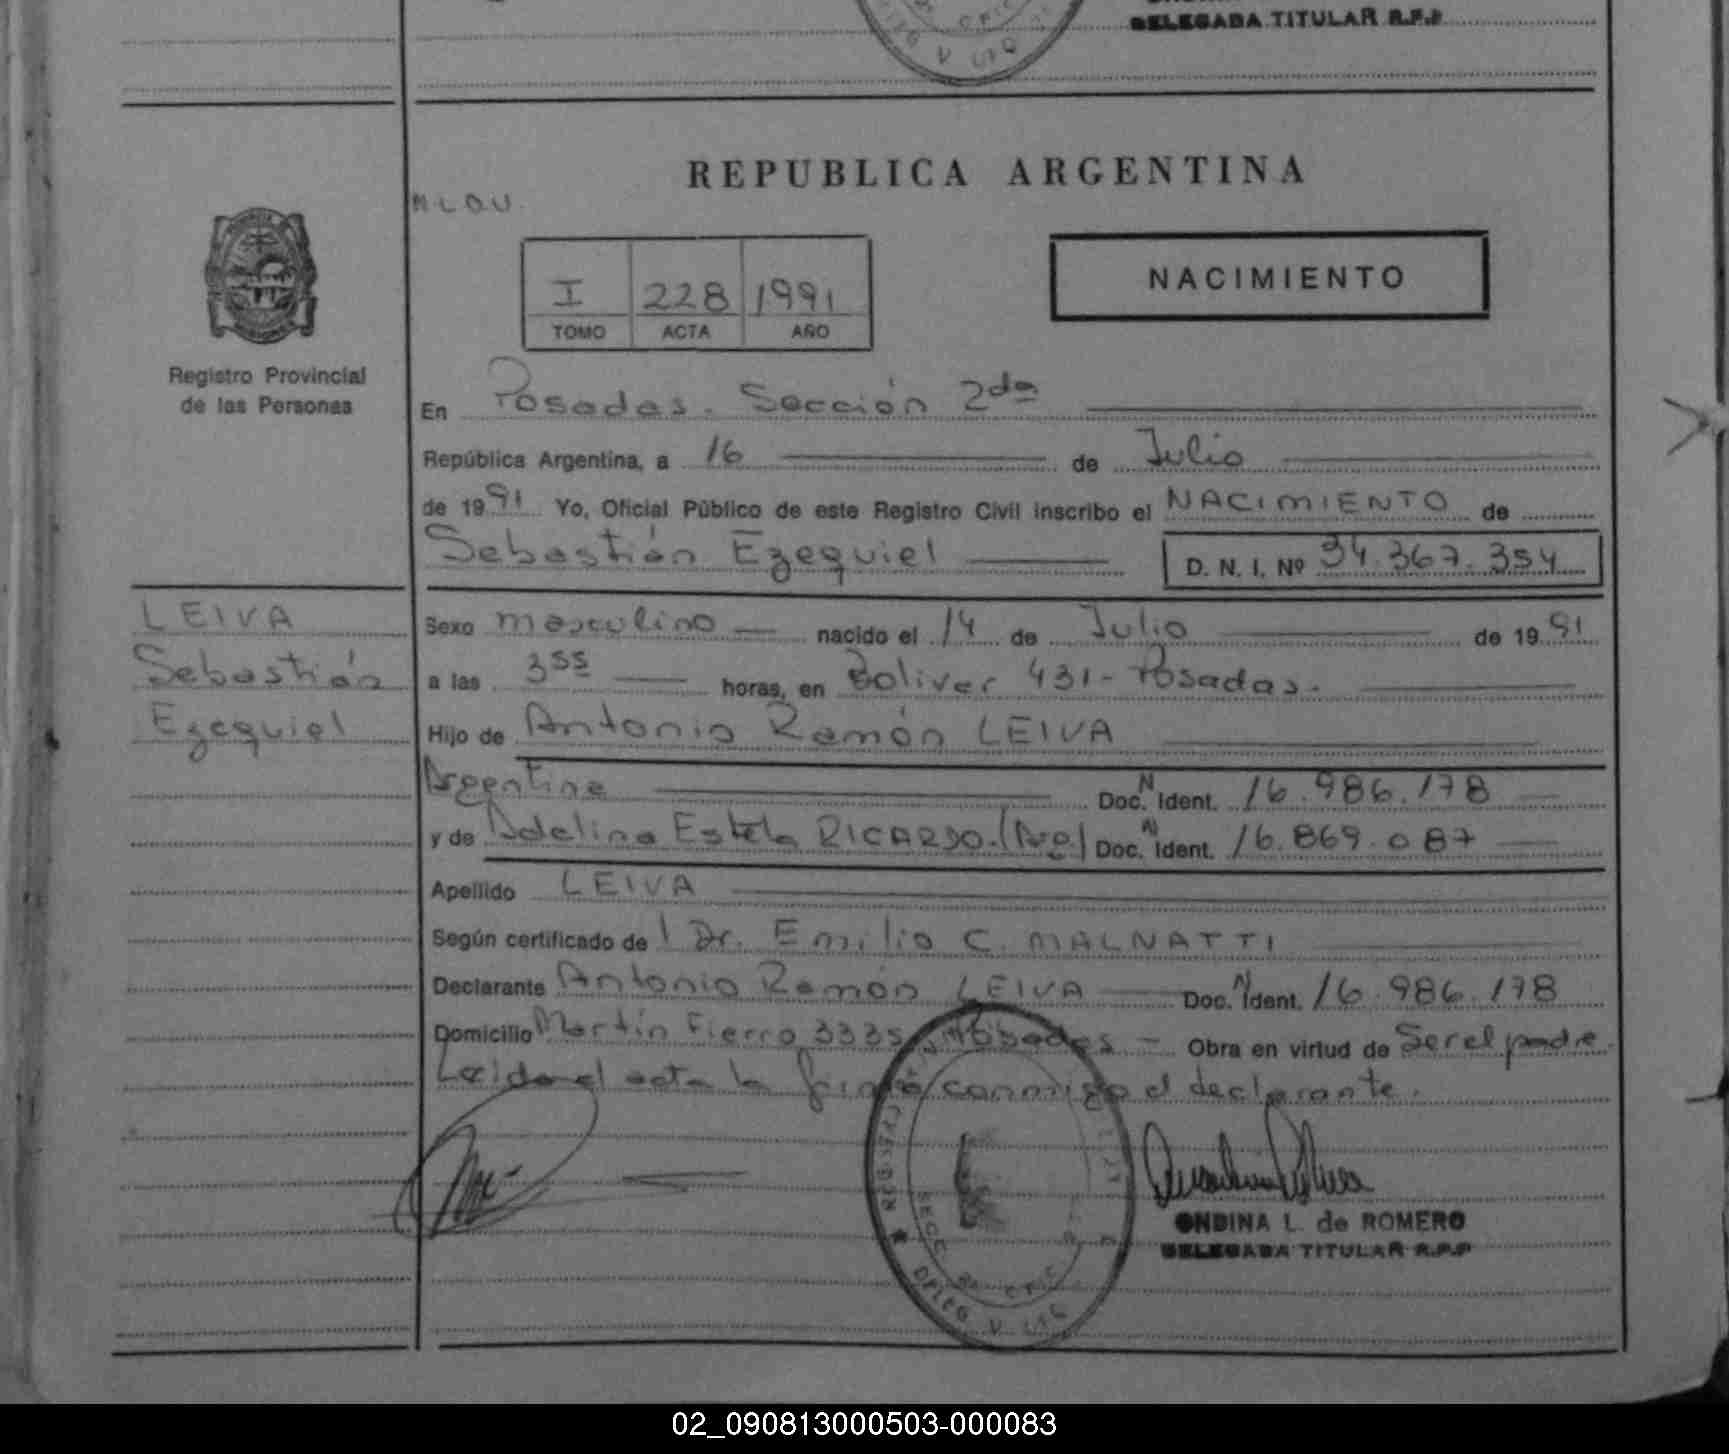 DELEGADA TITULAR R.P.P
REPUBLICA ARGENTINA
I 228 1991
TOMO ACTA AÑO
NACIMIENTO
Registro Provincial
de las Personas
En Posadas. Sección 2da
República Argentina, a 16 de Julio
de 1991 Yo, Oficial Público de este Registro Civil inscribo el NACIMIENTO de
Sebastián Ezequiel D. N. I. Nº 34.367.354
LEIVA
Sebastián
Ezequiel
Sexo masculino nacido el 14 de Julio de 1991
a las 3 55 horas, en Bolivar 431 - Posadas.
Hijo de Antonio Ramón LEIVA
Argentino Doc. N Ident. 16.986.178
y de Adelina Estela RICARDO. (Arg.) Doc. N Ident. 16.869.087
Apellido LEIVA
Según certificado de l Dr. Emilio C. MALNATTI
Declarante Antonio Ramón LEIVA Doc. N Ident. 16.986.178
Domicilio Martín Fierro 3335 Posadas - Obra en virtud de Ser el padre.
Leida el acta la firma conmigo el declarante.
ONDINA L. de ROMERO
DELEGADA TITULAR R.P.P
02_090813000503-000083